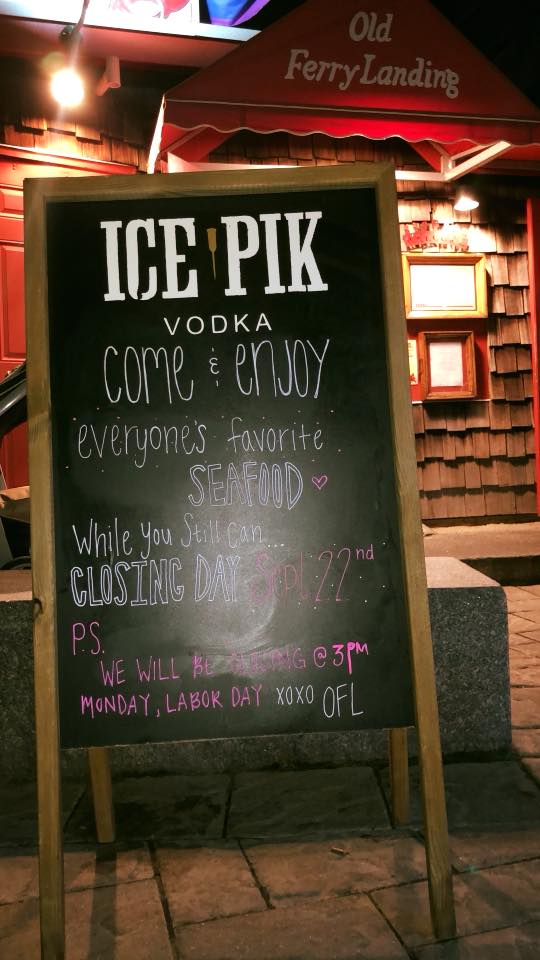 Old
Ferry Landing
ICE PIK
VODKA
COME & ENJOY
everyone's favorite
SEAFOOD
While You Still Can...
CLOSING DAY Sept 22nd
P.S.
WE WILL BE CLOSING @ 3PM
MONDAY, LABOR DAY XOXO OFL